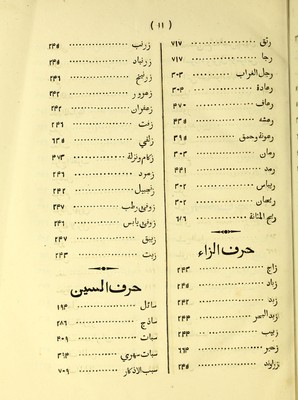 ( ١١ )
رتق ٧١٧
رجا ٧١٧
رجل الغراب ٣٠٣
رعادة ٣٠٤
رعاف ٤٧٠
رعشه ٤٣٥
رعونة وحمق ٣٩٥
رمان ٣٠٣
رمد ٤٤١
ريباس ٣٠٢
ريحان ٣٠٢
ريح المثانة ٦١٦
حرف الزاء
زاج ٢٤٣
زباد ٢٤٥
زبد ٢٤٢
زبد البحر ٢٤٤
زبيب ٢٤٤
زحير ٦٦٤
زراوند ٢٤٥
زرنب ٢٤٥
زرنباد ٢٤٥
زرنيخ ٢٤٦
زعرور ٢٤٢
زعفران ٢٤٢
زفت ٢٤٦
زلقي ٦٣٥
زكام ونزلة ٤٧٣
زمرد ٢٤٦
زنجبيل ٢٤٢
زوفى رطب ٢٤٧
زوفى يابس ٢٤٦
زيبق ٢٤٧
زيت ٢٤٣
حرف السين
سائل ١٩٤
ساذج ٢٨٦
سبات ٤٠٩
سبات سهري ٣٦٤
سبب الاذكار ٧٠٩